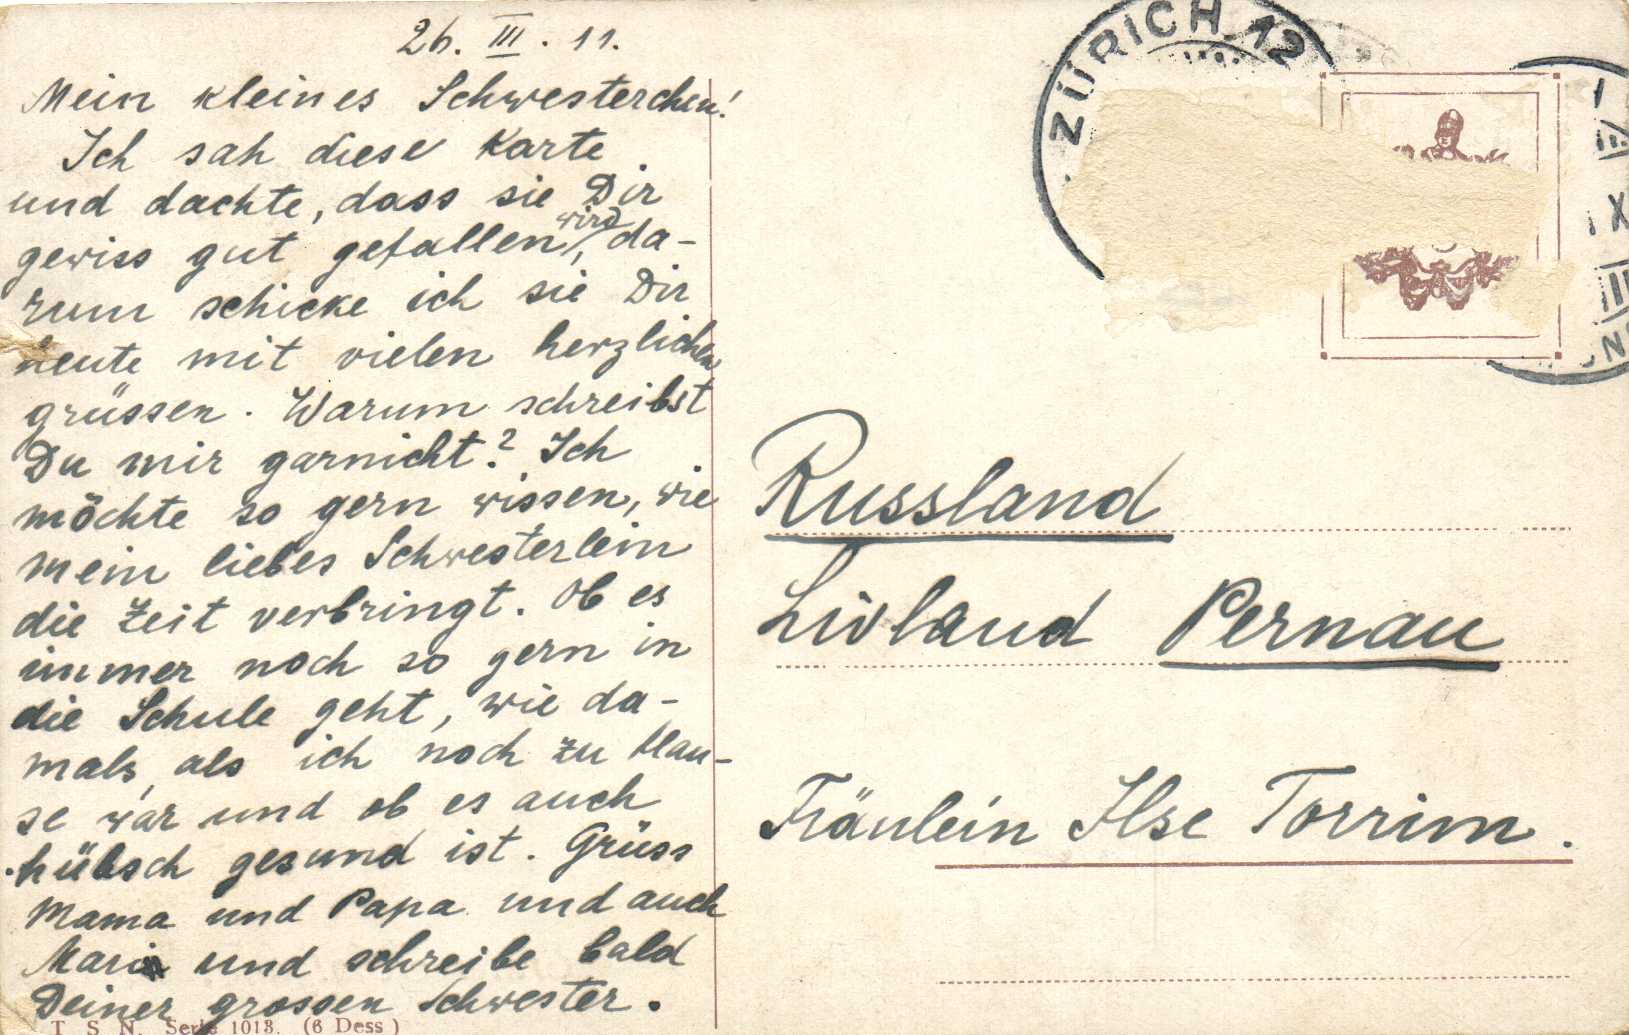 26. III. 11.
Mein kleines Schwesterchen!
Ich sah diese Karte
und dachte, dass sie Dir
gewiss gut gefallen wird, da-
rum schicke ich sie Dir
heute mit vielen herzlichen
grüssen. Warum schreibst
Du mir garnicht? Ich
möchte so gern wissen, wie
mein liebes Schwesterlein
die Zeit verbringt. Ob es
immer noch so gern in
die Schule geht, wie da-
mals, als ich noch zu Hau-
se war und ob es auch
hübsch gesund ist. Grüss
Mama und Papa und auch
und schreibe bald
Deiner grossen Schwester.
T. S. N. Serie 1013. (6 Dess)
ZÜRICH 12
Russland
Livland Pernau
Fräulein Ilse Torrim.